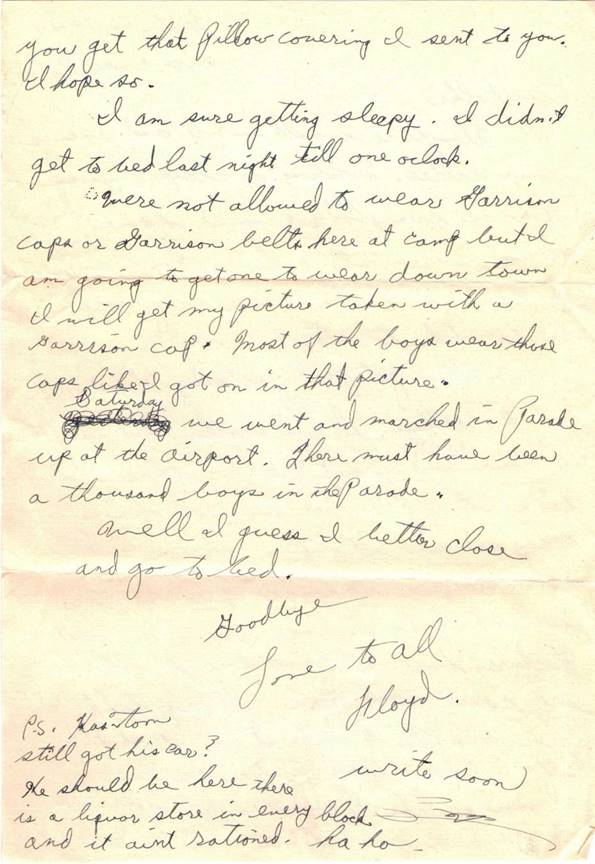 you get that Pillow covering I sent to you.
I hope so.
I am sure getting sleepy. I didn't
get to bed last night till one oclock.
Were not allowed to wear Garrison
caps or Garrison belts here at camp but I
am going to get one to wear down town
I will get my picture taken with a
Garrison cap. Most of the boys wear those
caps like I got on in that picture.
Saturday
we went and marched in Parade
up at the airport. There must have been
a thousand boys in the Parade.
Well I guess I better close
and go to bed.
Goodbye
Love to all
Floyd.
P.S. Has Tom
still got his car?
He should be here there
is a liquor store in every block
and it aint rationed. ha ha
write soon